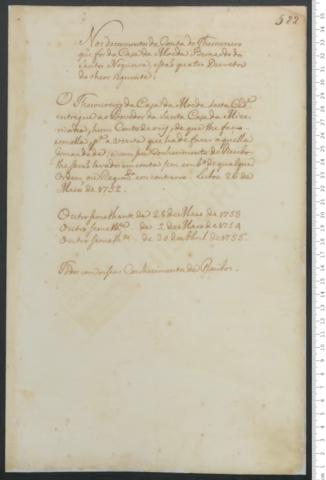 522
Nos documentos da Conta do Thezoureiro
que foi da Casa da Moeda Bernardo dos
Santos Nogueira, estaõ quatro Decretos
do theor seguinte.
O Thezoureiro da Casa da Moeda desta Cid.e
entregue ao Provedor da Santa Casa da Mize-
ricordia, hum Conto de reis, de que lhe faço
esmolla p.a a
e com
lhe será levado em conta sem emb.o de qualquer
Ordem ou Regim.to em contrario. Lisboa 26 de
Mayo de 1752.
Outro semelhante de 28 de Mayo de 1753
Outro semelh.te de 2 de Mayo de 1754
Outro semelh.te de 30 de Abril de 1755.
Todos com os seus Conhecimentos de Recibos.